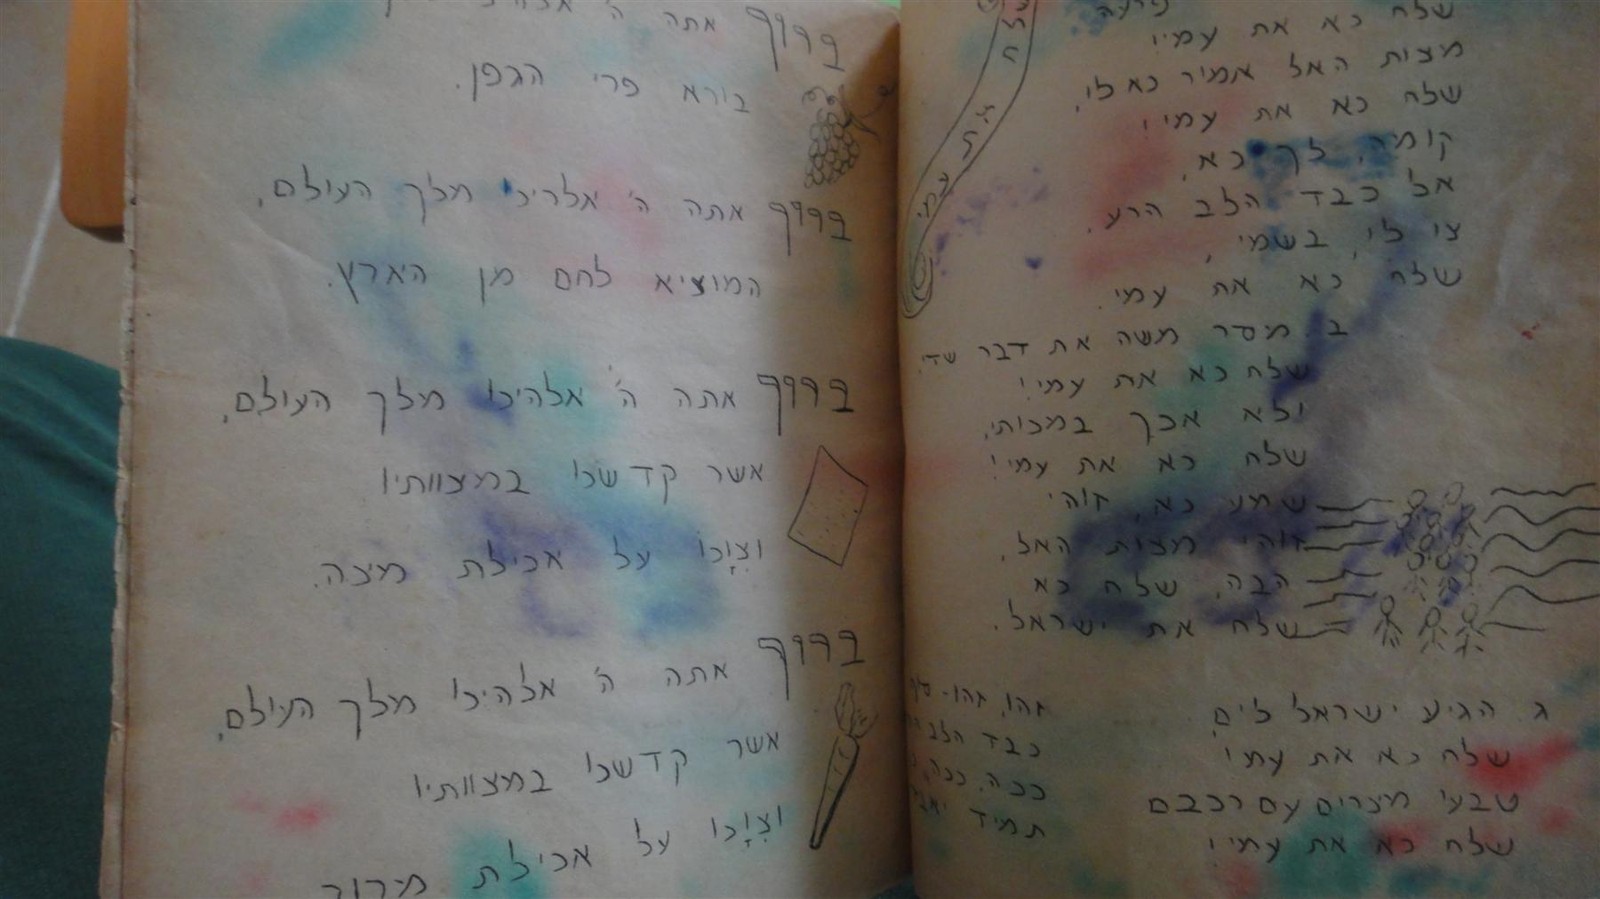 שלח נא את עמי!
מצות האל אמור נא לו,
שלח נא את עמי!
קומה, לך נא,
אל כבד הלב הרע.
צו לו, בשמי,
שלח נא את עמי.
ב מסר משה את דבר שדי,
שלח נא את עמי!
ולא אכך במכותי,
שלח נא את עמי!
שמע נא, זוהי
זוהי מצות האל,
הבה, שלח נא
שלח את ישראל.
ג הגיע ישראל לים,
שלח נא את עמי!
טבעו מצרים עם רכבם
שלח נא את עמי!
זהו, זהו-
כבד הלב
ככה, ככה,
תמיד
את עמי
ברוך אתה ה'
בורא פרי הגפן.
ברוך אתה ה' אלהינו מלך העולם,
המוציא לחם מן הארץ.
ברוך אתה ה' אלהינו מלך העולם,
אשר קדשנו במצוותיו
וצונו על אכילת מצה.
ברוך אתה ה' אלהינו מלך העולם,
אשר קדשנו במצוותיו
וצונו על אכילת מרור